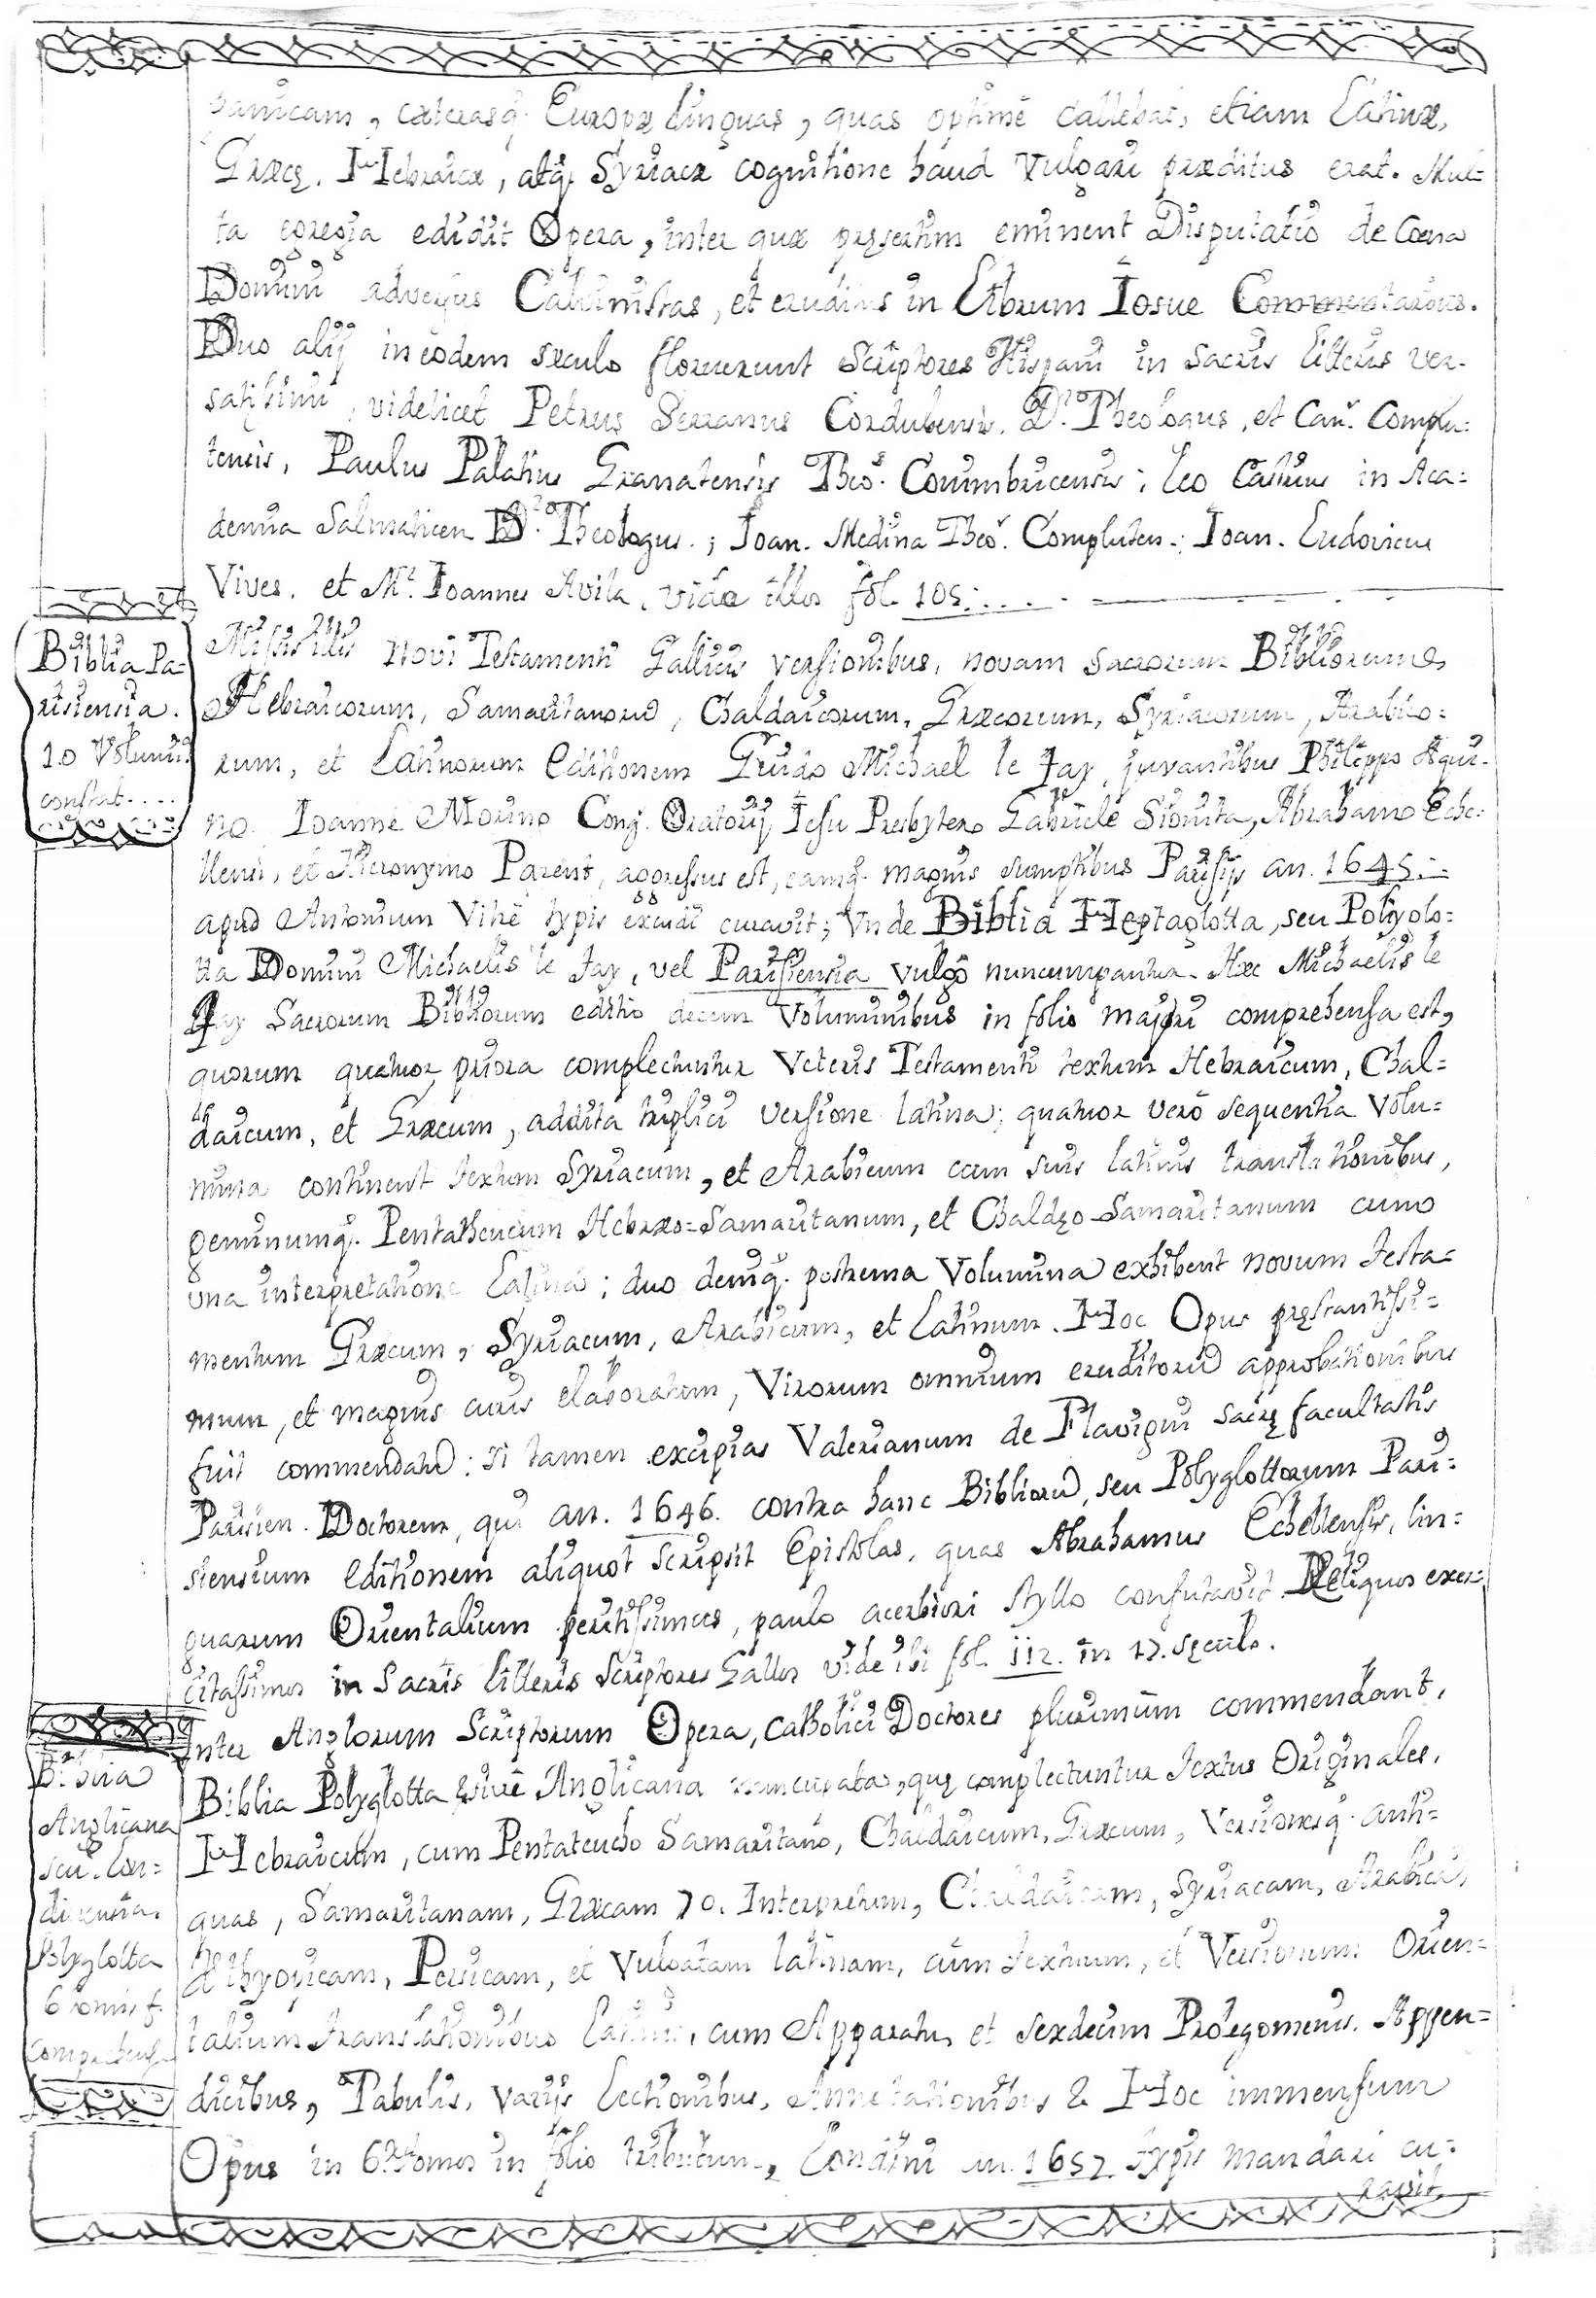 panicam, cæterasq. Europæ linguas, quas optimè callebat, etiam Latinæ,
Græcę. Hebraicæ, atq. Syriacæ cognitione haud vulgari præditus erat. Mul=
ta egregia edidit Opera, inter quæ pręsertim eminent Disputatio de Cœna
Domini adversus Calvinistas, et eruditus in Librum Iosue Commentarius.
Duo alij in eodem sæculo floruerunt Scriptores Hispani in Sacris litteris ver-
satissimi, videlicet Petrus Serranus Cordubensis. Dr. Theologus, et Can. Complu=
tensis, Paulus Palatius Granatensis Theo. Conimbricensis; Leo Castrius in Aca=
demia Salmaticen Dr. Theologus.; Ioan. Medina Theo. Compluten.; Ioan. Ludovicus
Vives. et Mr. Ioannes Avila. vide illos fol. 105.
Biblia Pa=
risiensia.
10 Volumi.
constat....
Missis illis Novi Testamenti Gallicis versionibus, novam sacrorum Bibliorum
Hebraicorum, Samaritanorū, Chaldaicorum, Græcorum, Syriacorum, Arabico=
rum, et Latinorum Editionem Guido Michael le Jay, juvantibus Philippo Aqui-
no. Ioanne Morino Cong. Oratorij Iesu Presbytero Gabriele Sionita, Abrahamo Eche=
llensi, et Hieronymo Parent, aggressus est, eamq. magnis sumptibus Parisijs an. 1645.
apud Antonium Vitrè typis excudi curavit; Unde Biblia Heptaglotta, seu Polyglo=
tta Domini Michaelis le Jay, vel Parisiensia vulgò nuncumpantur. Hæc Michaelis le
Jay Sacrorum Bibliorum editio decem Voluminibus in folio majori comprehensa est,
quorum quatuor priora complectuntur Veteris Testamenti textum Hebraicum, Chal=
daicum, et Græcum, addita triplici versione latina; quatuor verò sequentia Volu=
mina continent textum Syriacum, et Arabicum cum suis latinis translationibus,
geminumq. Pentatheucum Hebræo=Samaritanum, et Chaldęo-Samaritanum cum
una interpretatione Latina; duo deniq. postrema Volumina exhibent novum Testa=
mentum Græcum, Syriacum, Arabicum, et Latinum. Hoc Opus pręstantissi=
mum, et magnis curis elaboratum, Virorum omnium eruditorū approbationibus
fuit commendatū: si tamen excipias Valerianum de Flavigni Sacrę facultatis
Parisien. Doctorem, qui an. 1646. contra hanc Bibliorū, seu Polyglottorum Pari=
siensium editionem aliquot scripsit Epistolas, quas Abrahamus Echellensis, lin=
guarum Orientalium peritissimus, paulo acerbiori styllo confutavit. Reliquos exer=
citatissimos in Sacris litteris Scriptores Gallos vide ibi fol. 112. in 17. sęculo.
Biblia
Anglicana
seu Lon=
dinensia.
Polyglotta
6 tomis f.
comprehens.
Inter Anglorum Scriptorum Opera, catholici Doctores plurimùm commendant,
Biblia Polyglotta sive Anglicana nuncupata, quę complectuntur Textus Originales.
Hebraicum, cum Pentateucho Samaritano, Chaldaicum, Græcum, Versionesq. anti=
quas, Samaritanam, Græcam 70. Interpretum, Chaldaicam, Syriacam, Arabicā,
Æthyopicam, Persicam, et Vulgatam latinam, cùm Textuum, et Versionum Orien=
talium translationibus latinis, cum Apparatu, et sexdecim Prolegomenis. Appen=
dicibus, Tabulis, varijs Lectionibus, Annotationibus & Hoc immensum
Opus in 6. tomos in folio tributum, Londini an. 1657. typis mandari cu=
ravit